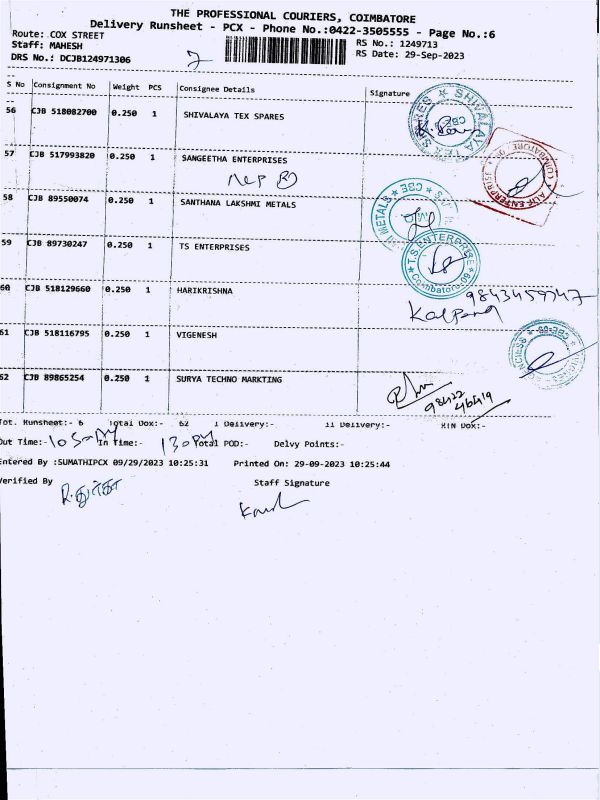 THE PROFESSIONAL COURIERS, COIMBATORE
Delivery Runsheet - PCX - Phone No.:0422-3505555 - Page No.:6
Route: COX STREET
RS No.: 1249713
Staff: MAHESH
RS Date: 29-Sep-2023
DRS No.: DCJB124971306
7
S No Consignment No Weight PCS Consignee Details Signature
56 CJB 518082700 0.250 1 SHIVALAYA TEX SPARES
SHIVALAYA TEX SPARES CBE
57 CJB 517993820 0.250 1 SANGEETHA ENTERPRISES
58 CJB 89550074 0.250 1 SANTHANA LAKSHMI METALS
METALS CBE
59 CJB 89730247 0.250 1 TS ENTERPRISES
T.S.ENTERPRISE Coimbatore-09
60 CJB 518129660 0.250 1 HARIKRISHNA
Kalpana
61 CJB 518116795 0.250 1 VIGENESH
62 CJB 89865254 0.250 1 SURYA TECHNO MARKTING
Tot. Runsheet:- 6 Total Dox:- 62 I Delivery:- II Delivery:- RTN Dox:-
Out Time:- In Time:- Total POD:- Delvy Points:-
Entered By :SUMATHIPCX 09/29/2023 10:25:31 Printed On: 29-09-2023 10:25:44
Verified By Staff Signature